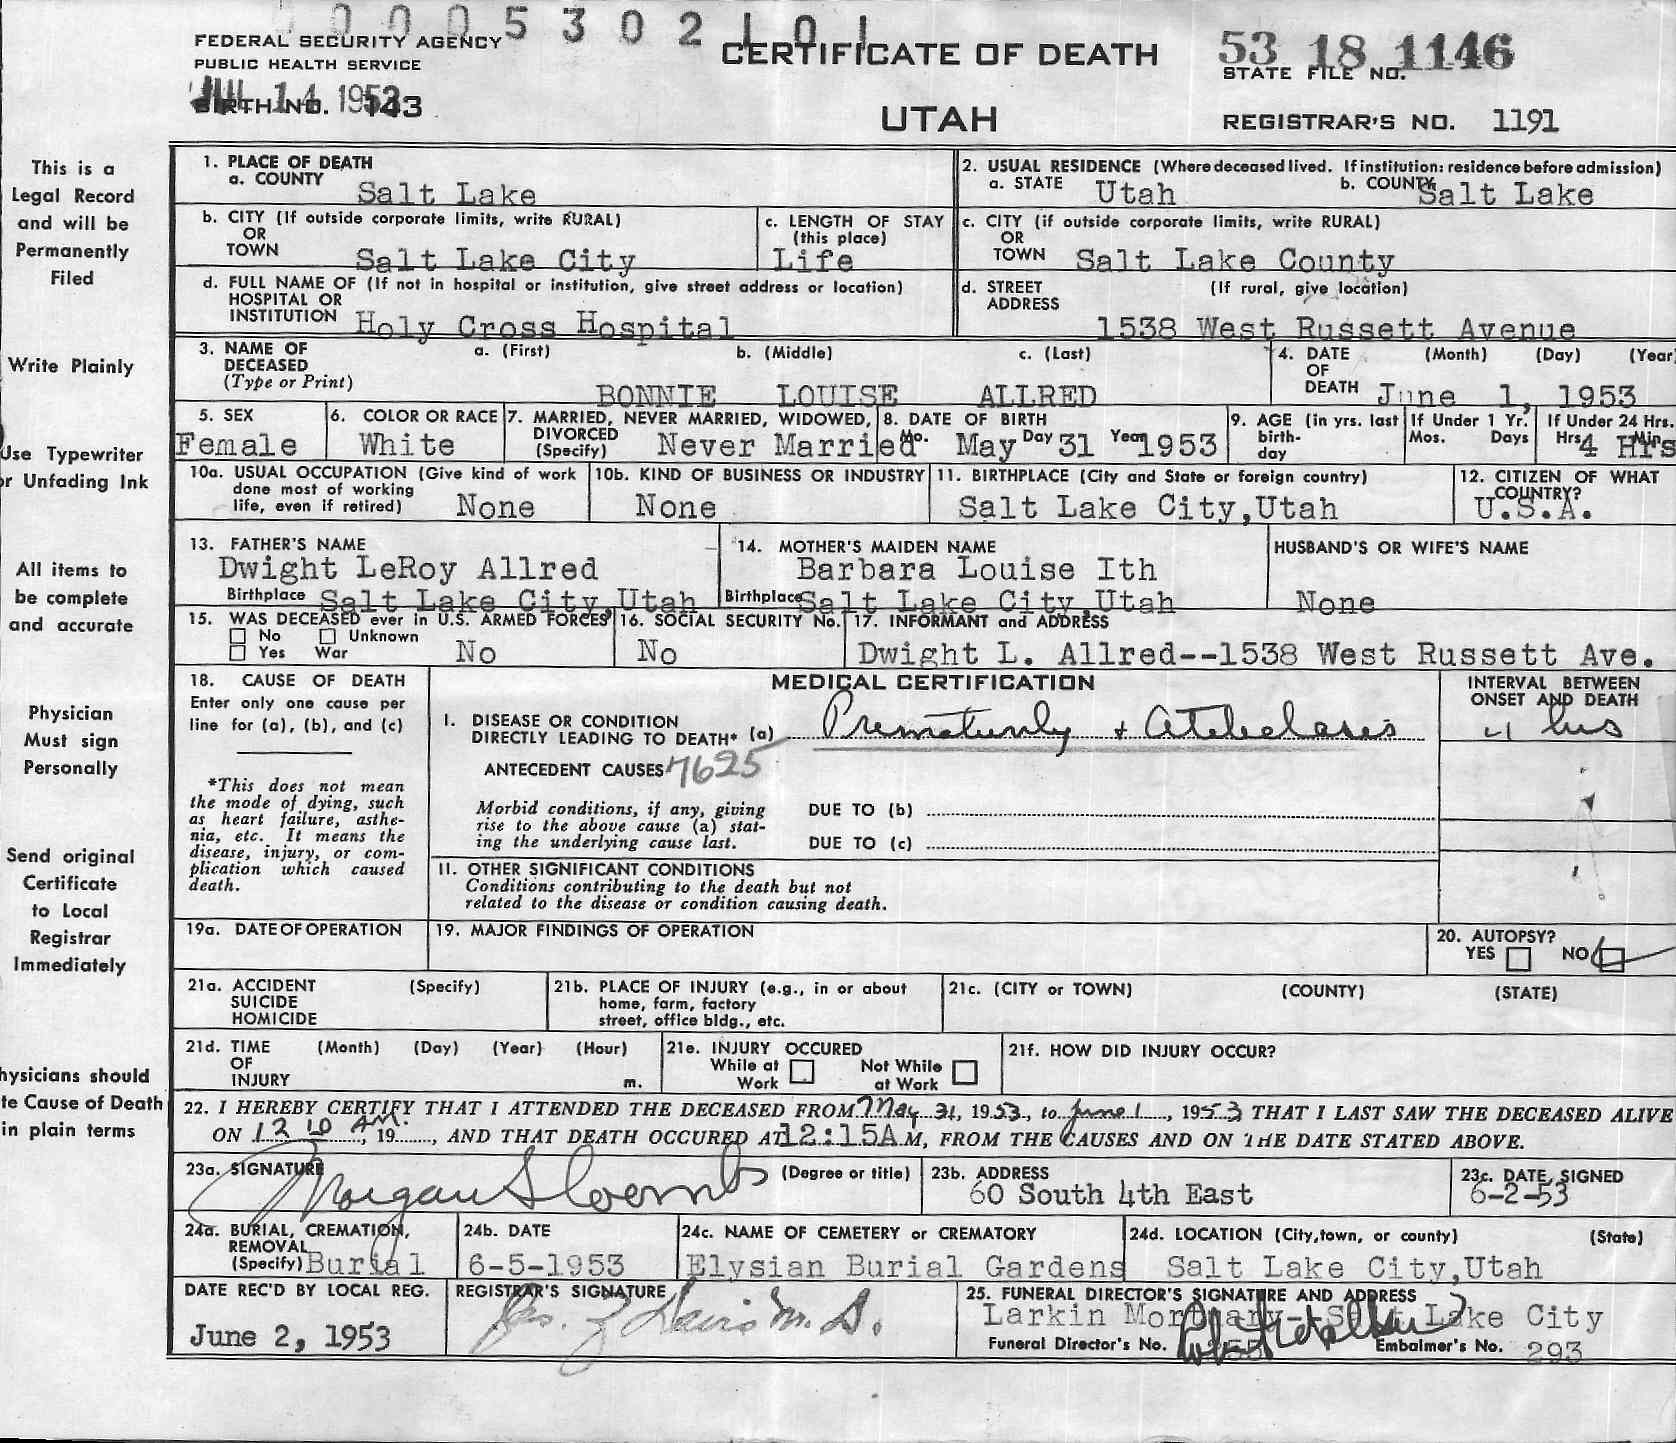 0 0 0 5 3 0 2 1 0 1
FEDERAL SECURITY AGENCY
PUBLIC HEALTH SERVICE
JUL 14 1953
BIRTH NO. 143
CERTIFICATE OF DEATH
UTAH
53 18 1146
STATE FILE NO.
REGISTRAR'S NO. 1191
This is a
Legal Record
and will be
Permanently
Filed
Write Plainly
Use Typewriter
or Unfading Ink
All items to
be complete
and accurate
Physician
Must sign
Personally
Send original
Certificate
to Local
Registrar
Immediately
hysicians should
te Cause of Death
in plain terms
1. PLACE OF DEATH
a. COUNTY Salt Lake
2. USUAL RESIDENCE (Where deceased lived. If institution: residence before admission)
a. STATE Utah b. COUNTY Salt Lake
b. CITY (If outside corporate limits, write RURAL)
OR
TOWN Salt Lake City
c. LENGTH OF STAY
(this place)
Life
c. CITY (if outside corporate limits, write RURAL)
OR
TOWN Salt Lake County
d. FULL NAME OF (If not in hospital or institution, give street address or location)
HOSPITAL OR
INSTITUTION Holy Cross Hospital
d. STREET (If rural, give location)
ADDRESS
1538 West Russett Avenue
3. NAME OF a. (First) b. (Middle) c. (Last)
DECEASED
(Type or Print)
BONNIE LOUISE ALLRED
4. DATE (Month) (Day) (Year)
OF
DEATH June 1, 1953
5. SEX
Female
6. COLOR OR RACE
White
7. MARRIED, NEVER MARRIED, WIDOWED,
DIVORCED
(Specify) Never Married
8. DATE OF BIRTH
Mo. May Day 31 Year 1953
9. AGE (in yrs. last
birth-
day
If Under 1 Yr.
Mos. Days
If Under 24 Hrs.
Hrs. 4 Hrs Min.
10a. USUAL OCCUPATION (Give kind of work
done most of working
life, even if retired) None
10b. KIND OF BUSINESS OR INDUSTRY
None
11. BIRTHPLACE (City and State or foreign country)
Salt Lake City,Utah
12. CITIZEN OF WHAT
COUNTRY?
U.S.A.
13. FATHER'S NAME
Dwight LeRoy Allred
Birthplace Salt Lake City,Utah
14. MOTHER'S MAIDEN NAME
Barbara Louise Ith
Birthplace Salt Lake City,Utah
HUSBAND'S OR WIFE'S NAME
None
15. WAS DECEASED ever in U.S. ARMED FORCES
No Unknown
Yes War No
16. SOCIAL SECURITY No.
No
17. INFORMANT and ADDRESS
Dwight L. Allred--1538 West Russett Ave.
18. CAUSE OF DEATH
Enter only one cause per
line for (a), (b), and (c)
*This does not mean
the mode of dying, such
as heart failure, asthe-
nia, etc. It means the
disease, injury, or com-
plication which caused
death.
MEDICAL CERTIFICATION
I. DISEASE OR CONDITION
DIRECTLY LEADING TO DEATH* (a) Prematurity + Atelectasis
ANTECEDENT CAUSES 7625
Morbid conditions, if any, giving
rise to the above cause (a) stat-
ing the underlying cause last.
DUE TO (b)
DUE TO (c)
II. OTHER SIGNIFICANT CONDITIONS
Conditions contributing to the death but not
related to the disease or condition causing death.
INTERVAL BETWEEN
ONSET AND DEATH
4 hrs
19a. DATE OF OPERATION
19. MAJOR FINDINGS OF OPERATION
20. AUTOPSY?
YES NO
21a. ACCIDENT (Specify)
SUICIDE
HOMICIDE
21b. PLACE OF INJURY (e.g., in or about
home, farm, factory
street, office bldg., etc.
21c. (CITY or TOWN) (COUNTY) (STATE)
21d. TIME (Month) (Day) (Year) (Hour)
OF
INJURY m.
21e. INJURY OCCURED
While at Work Not While at Work
21f. HOW DID INJURY OCCUR?
22. I HEREBY CERTIFY THAT I ATTENDED THE DECEASED FROM May 31, 1953, to June 1, 1953 THAT I LAST SAW THE DECEASED ALIVE
ON 12 10 AM., 19......, AND THAT DEATH OCCURED AT 12:15A M, FROM THE CAUSES AND ON THE DATE STATED ABOVE.
23a. SIGNATURE (Degree or title)
Morgan S Coombs
23b. ADDRESS
60 South 4th East
23c. DATE SIGNED
6-2-53
24a. BURIAL, CREMATION,
REMOVAL
(Specify) Burial
24b. DATE
6-5-1953
24c. NAME OF CEMETERY or CREMATORY
Elysian Burial Gardens
24d. LOCATION (City,town, or county) (State)
Salt Lake City,Utah
DATE REC'D BY LOCAL REG.
June 2, 1953
REGISTRAR'S SIGNATURE
Jas. Z Davis M. D.
25. FUNERAL DIRECTOR'S SIGNATURE AND ADDRESS
Larkin Mortuary--Salt Lake City
Funeral Director's No. Embalmer's No. 293